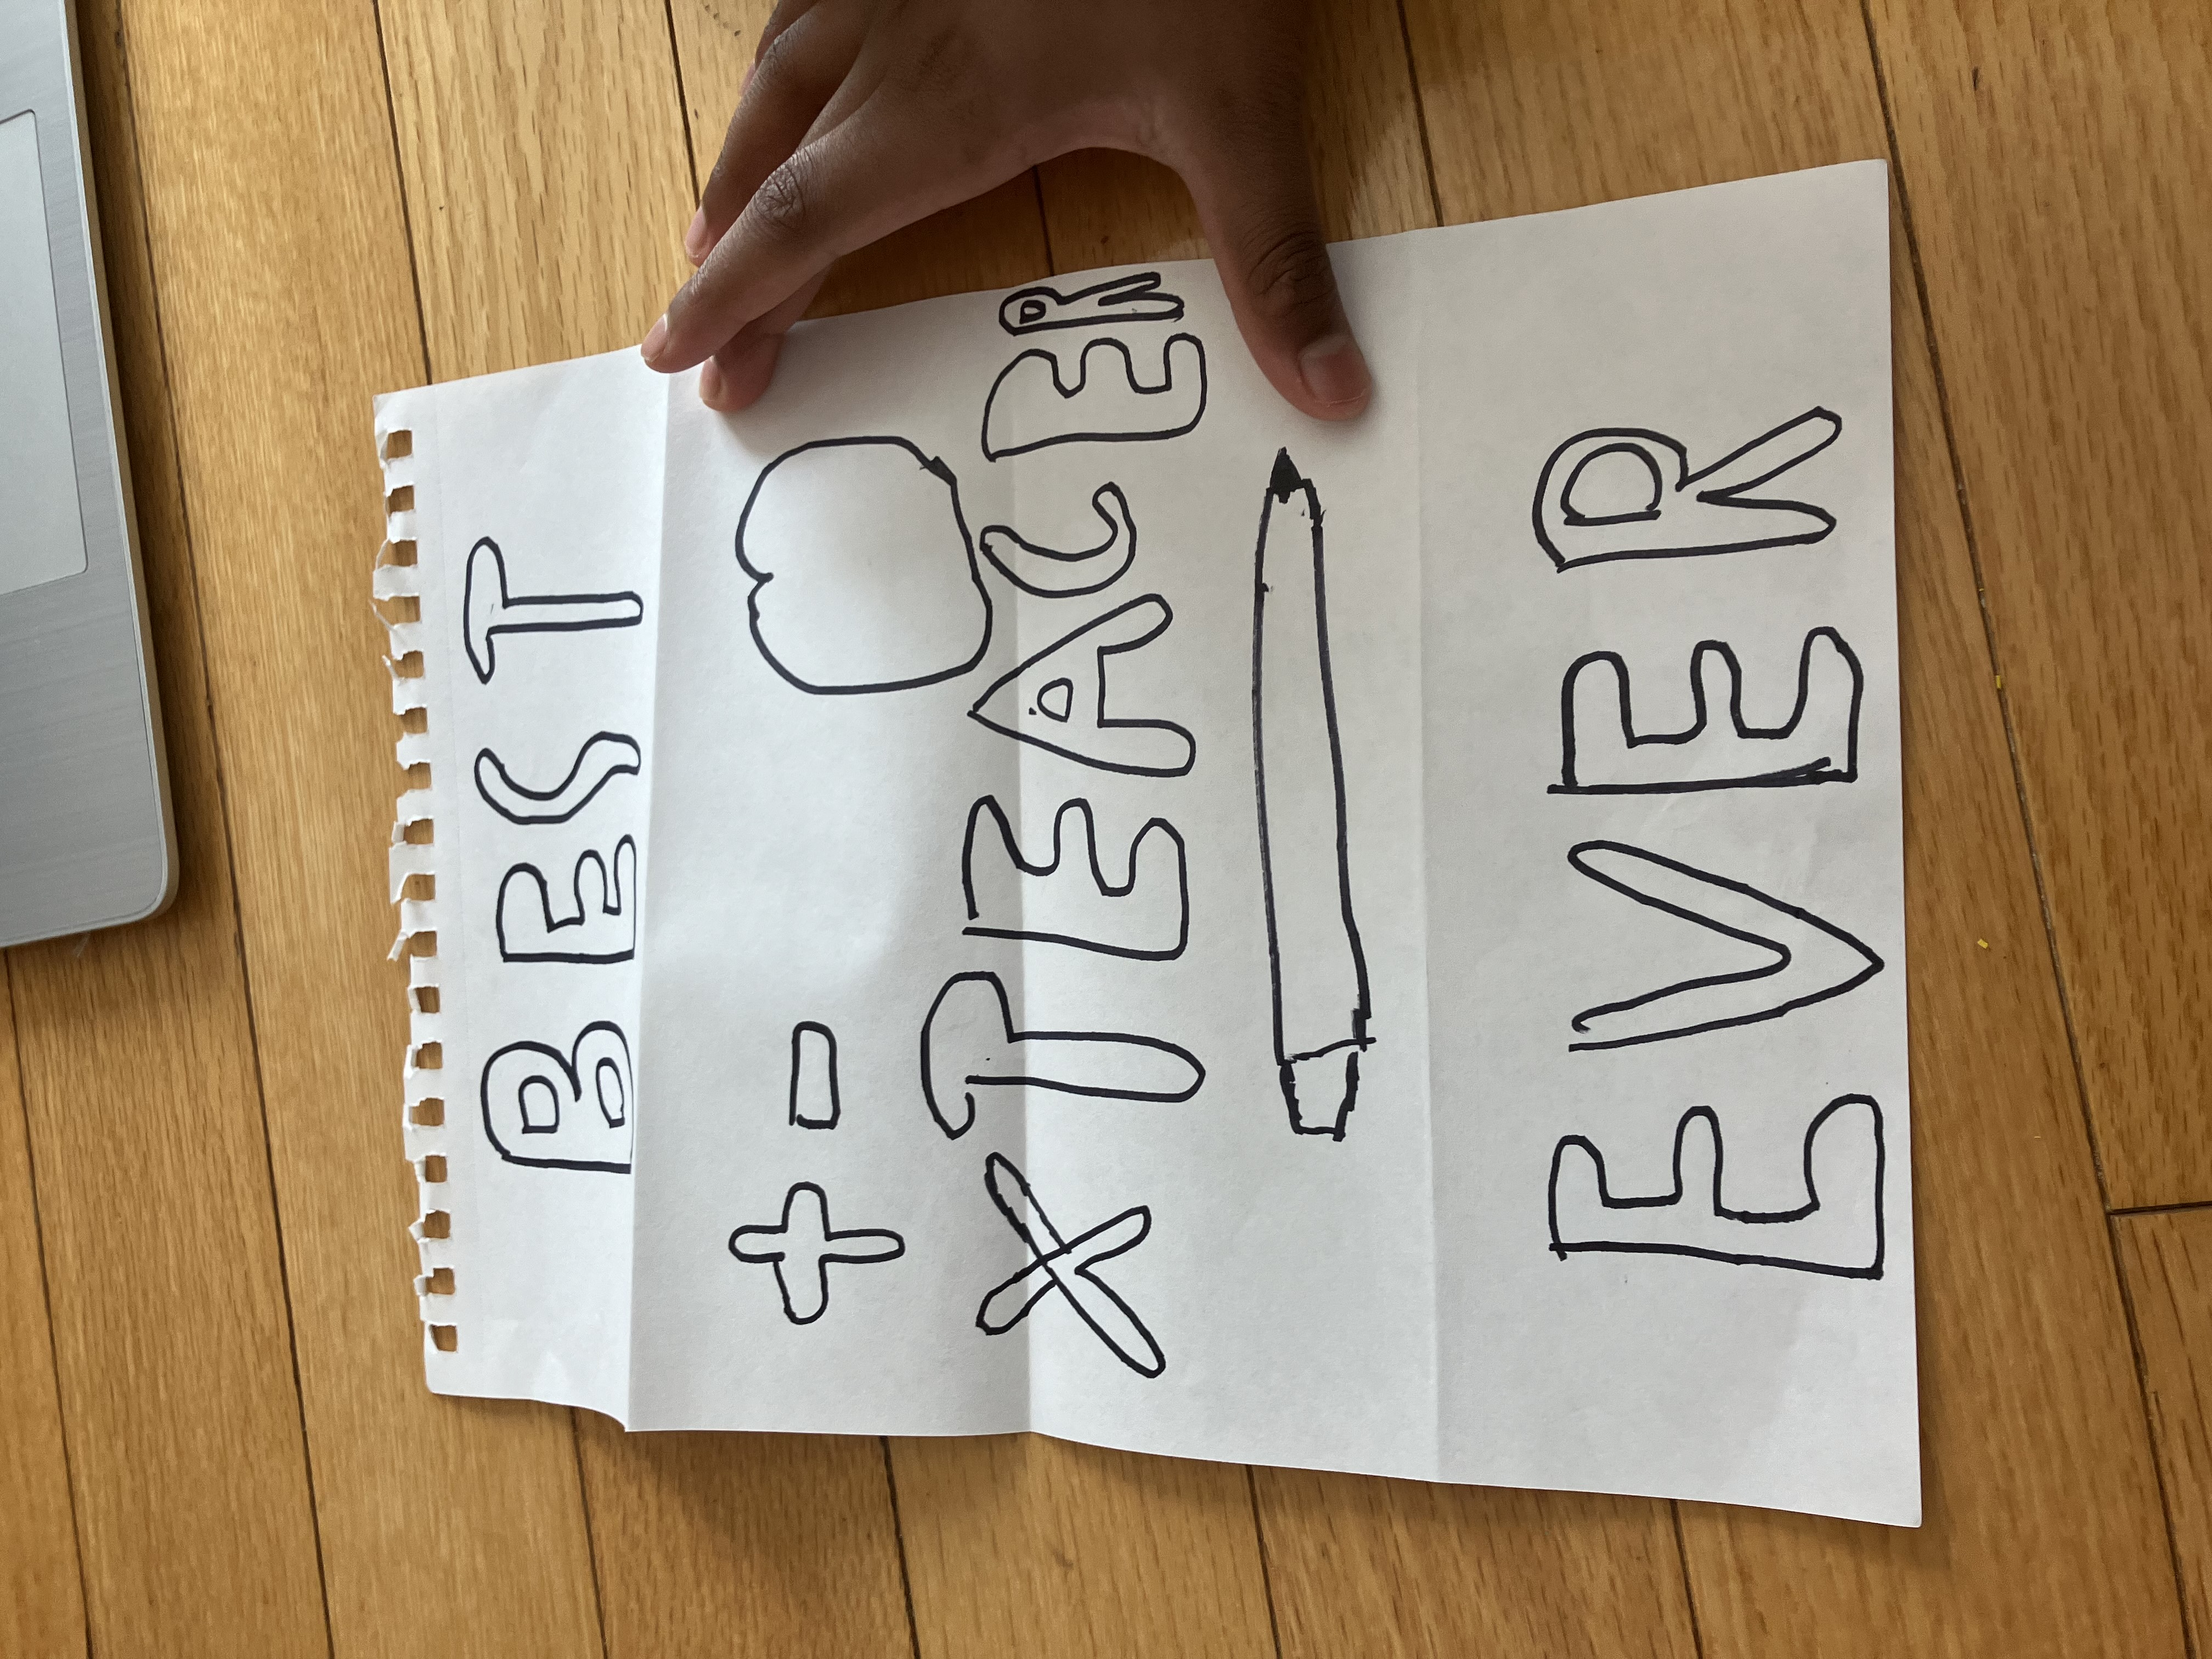 BEST
+ -
x TEACER
EVER